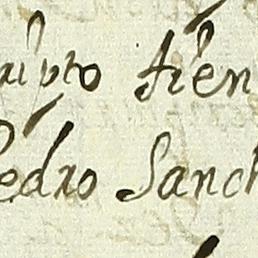 ripto tien
Pedro Sanch